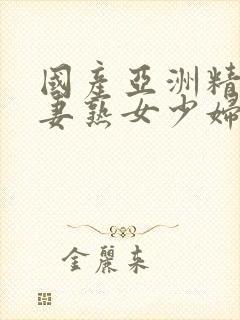 國產亞洲精
妻熟女少婦
金麗來